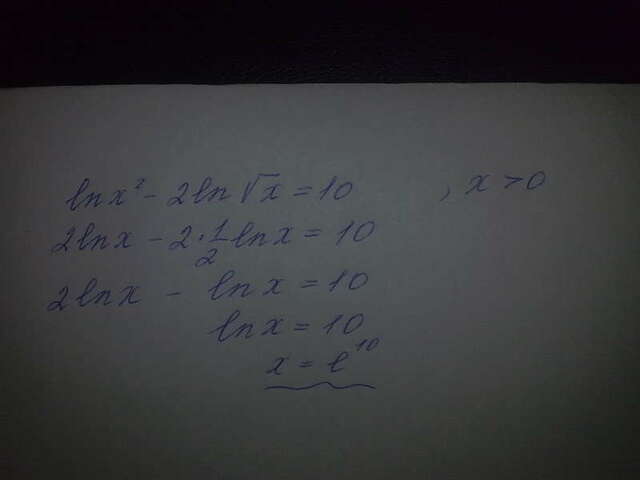 ln x² - 2 ln √x = 10 , x > 0
2 ln x - 2 · 1/2 ln x = 10
2 ln x - ln x = 10
ln x = 10
x = e¹⁰